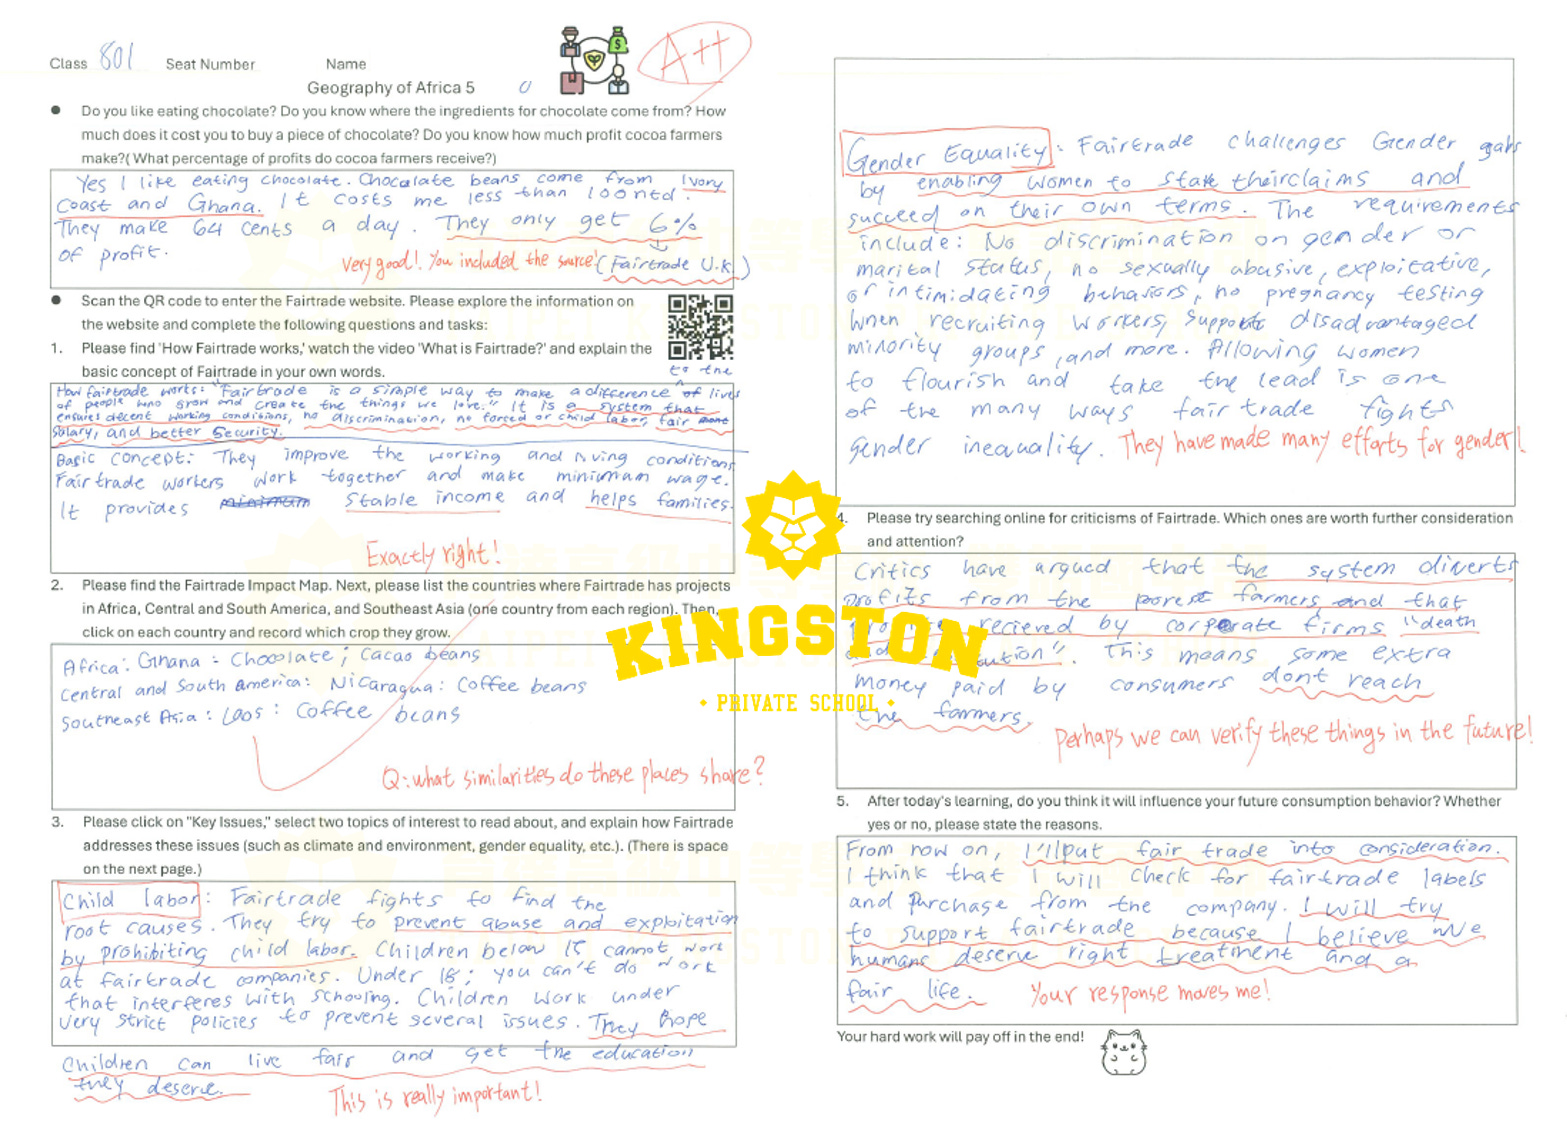 Class 801 Seat Number Name
A++
Geography of Africa 5
● Do you like eating chocolate? Do you know where the ingredients for chocolate come from? How
much does it cost you to buy a piece of chocolate? Do you know how much profit cocoa farmers
make?( What percentage of profits do cocoa farmers receive?)
Yes I like eating chocolate. Chocolate beans come from Ivory
Coast and Ghana. It costs me less than 100ntd.
They make 64 cents a day. They only get 6%
of profit.
very good! You included the source! (Fairtrade U.K.)
● Scan the QR code to enter the Fairtrade website. Please explore the information on
the website and complete the following questions and tasks:
1. Please find 'How Fairtrade works,' watch the video 'What is Fairtrade?' and explain the
basic concept of Fairtrade in your own words.
to the
How fairtrade works: "Fairtrade is a simple way to make a difference of lives
of people who grow and create the things we love." It is a system that
ensures decent working conditions, no discrimination, no forced or child labor, fair
salary, and better security.
Basic concept: They improve the working and living conditions
Fairtrade workers work together and make minimum wage.
It provides minimum stable income and helps families.
Exactly right!
2. Please find the Fairtrade Impact Map. Next, please list the countries where Fairtrade has projects
in Africa, Central and South America, and Southeast Asia (one country from each region). Then,
click on each country and record which crop they grow.
Africa: Ghana = Chocolate; Cacao beans
Central and South America: Nicaragua: Coffee beans
Southeast Asia: Laos: Coffee beans
Q: what similarities do these places share?
3. Please click on "Key Issues," select two topics of interest to read about, and explain how Fairtrade
addresses these issues (such as climate and environment, gender equality, etc.). (There is space
on the next page.)
Child labor: Fairtrade fights to find the
root causes. They try to prevent abuse and exploitation
by prohibiting child labor. Children below 15 cannot work
at fairtrade companies. Under 18; you can't do work
that interferes with schooing. Children work under
very strict policies to prevent several issues. They hope
Children can live fair and get the education
they deserve.
This is really important!
Gender Equality: Fairtrade challenges Gender gabs
by enabling women to stake theirclaims and
succeed on their own terms. The requirements
include: No discrimination on gender or
marital status, no sexually abusive, exploitative,
or intimidating behaviors, no pregnancy testing
when recruiting workers, support disadvantaged
minority groups, and more. Allowing women
to flourish and take the lead is one
of the many ways fair trade fights
gender inequality. They have made many efforts for gender!
KINGSTON
PRIVATE SCHOOL
4. Please try searching online for criticisms of Fairtrade. Which ones are worth further consideration
and attention?
Critics have argued that the system diverts
profits from the porest farmers, and that
recieved by corporate firms "death
ution". This means some extra
money paid by consumers dont reach
the farmers.
Perhaps we can verify these things in the future!
5. After today's learning, do you think it will influence your future consumption behavior? Whether
yes or no, please state the reasons.
From now on, I'll put fair trade into consideration.
I think that I will check for fairtrade labels
and purchase from the company. I will try
to support fairtrade because I believe we
humans deserve right treatment and a
fair life. Your response moves me!
Your hard work will pay off in the end!